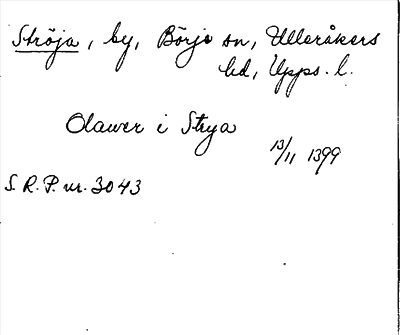 Ströja, by, Börje sn, Ulleråkers
hd, Upps. l.
Olawer i Strya
13/11 1399
S.R.P. nr. 3043